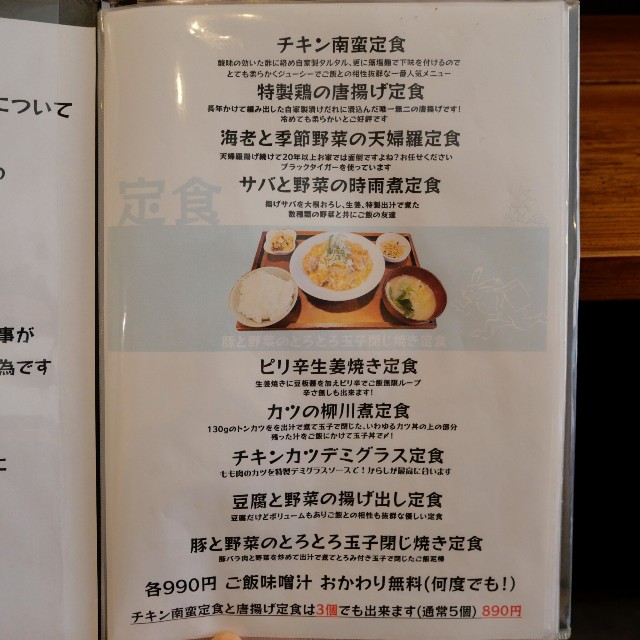 について
の
事が
為です
に
定食
チキン南蛮定食
酸味の効いた酢に絡め自家製タルタル、更に藻塩麹で下味を付けるので
とても柔らかくジューシーでご飯との相性抜群な一番人気メニュー
特製鶏の唐揚げ定食
長年かけて編み出した自家製漬けだれに漬込んだ唯一無二の唐揚げです!
冷めても柔らかいとご好評です
海老と季節野菜の天婦羅定食
天婦羅揚げ続けて20年以上お家では面倒ですよね?お任せください
ブラックタイガーを使っています
サバと野菜の時雨煮定食
揚げサバを大根おろし、生姜、特製出汁で煮た
数種類の野菜と共にご飯の友達
豚と野菜のとろとろ玉子閉じ焼き定食
ピリ辛生姜焼き定食
生姜焼きに豆板醤を加えピリ辛でご飯無限ループ
辛さ無しも出来ます!
カツの柳川煮定食
130gのトンカツをを出汁で煮て玉子で閉じた、いわゆるカツ丼の上の部分
残った汁をご飯にかけて玉子丼で〆!
チキンカツデミグラス定食
もも肉のカツを特製デミグラスソースで!からしが最高に合います
豆腐と野菜の揚げ出し定食
豆腐だけどボリュームもありご飯との相性も抜群な優しい定食
豚と野菜のとろとろ玉子閉じ焼き定食
豚バラ肉と野菜を炒めて出汁で煮てとろみ付き玉子で閉じたご飯泥棒
各990円 ご飯味噌汁 おかわり無料(何度でも!)
チキン南蛮定食と唐揚げ定食は3個でも出来ます(通常5個) 890円